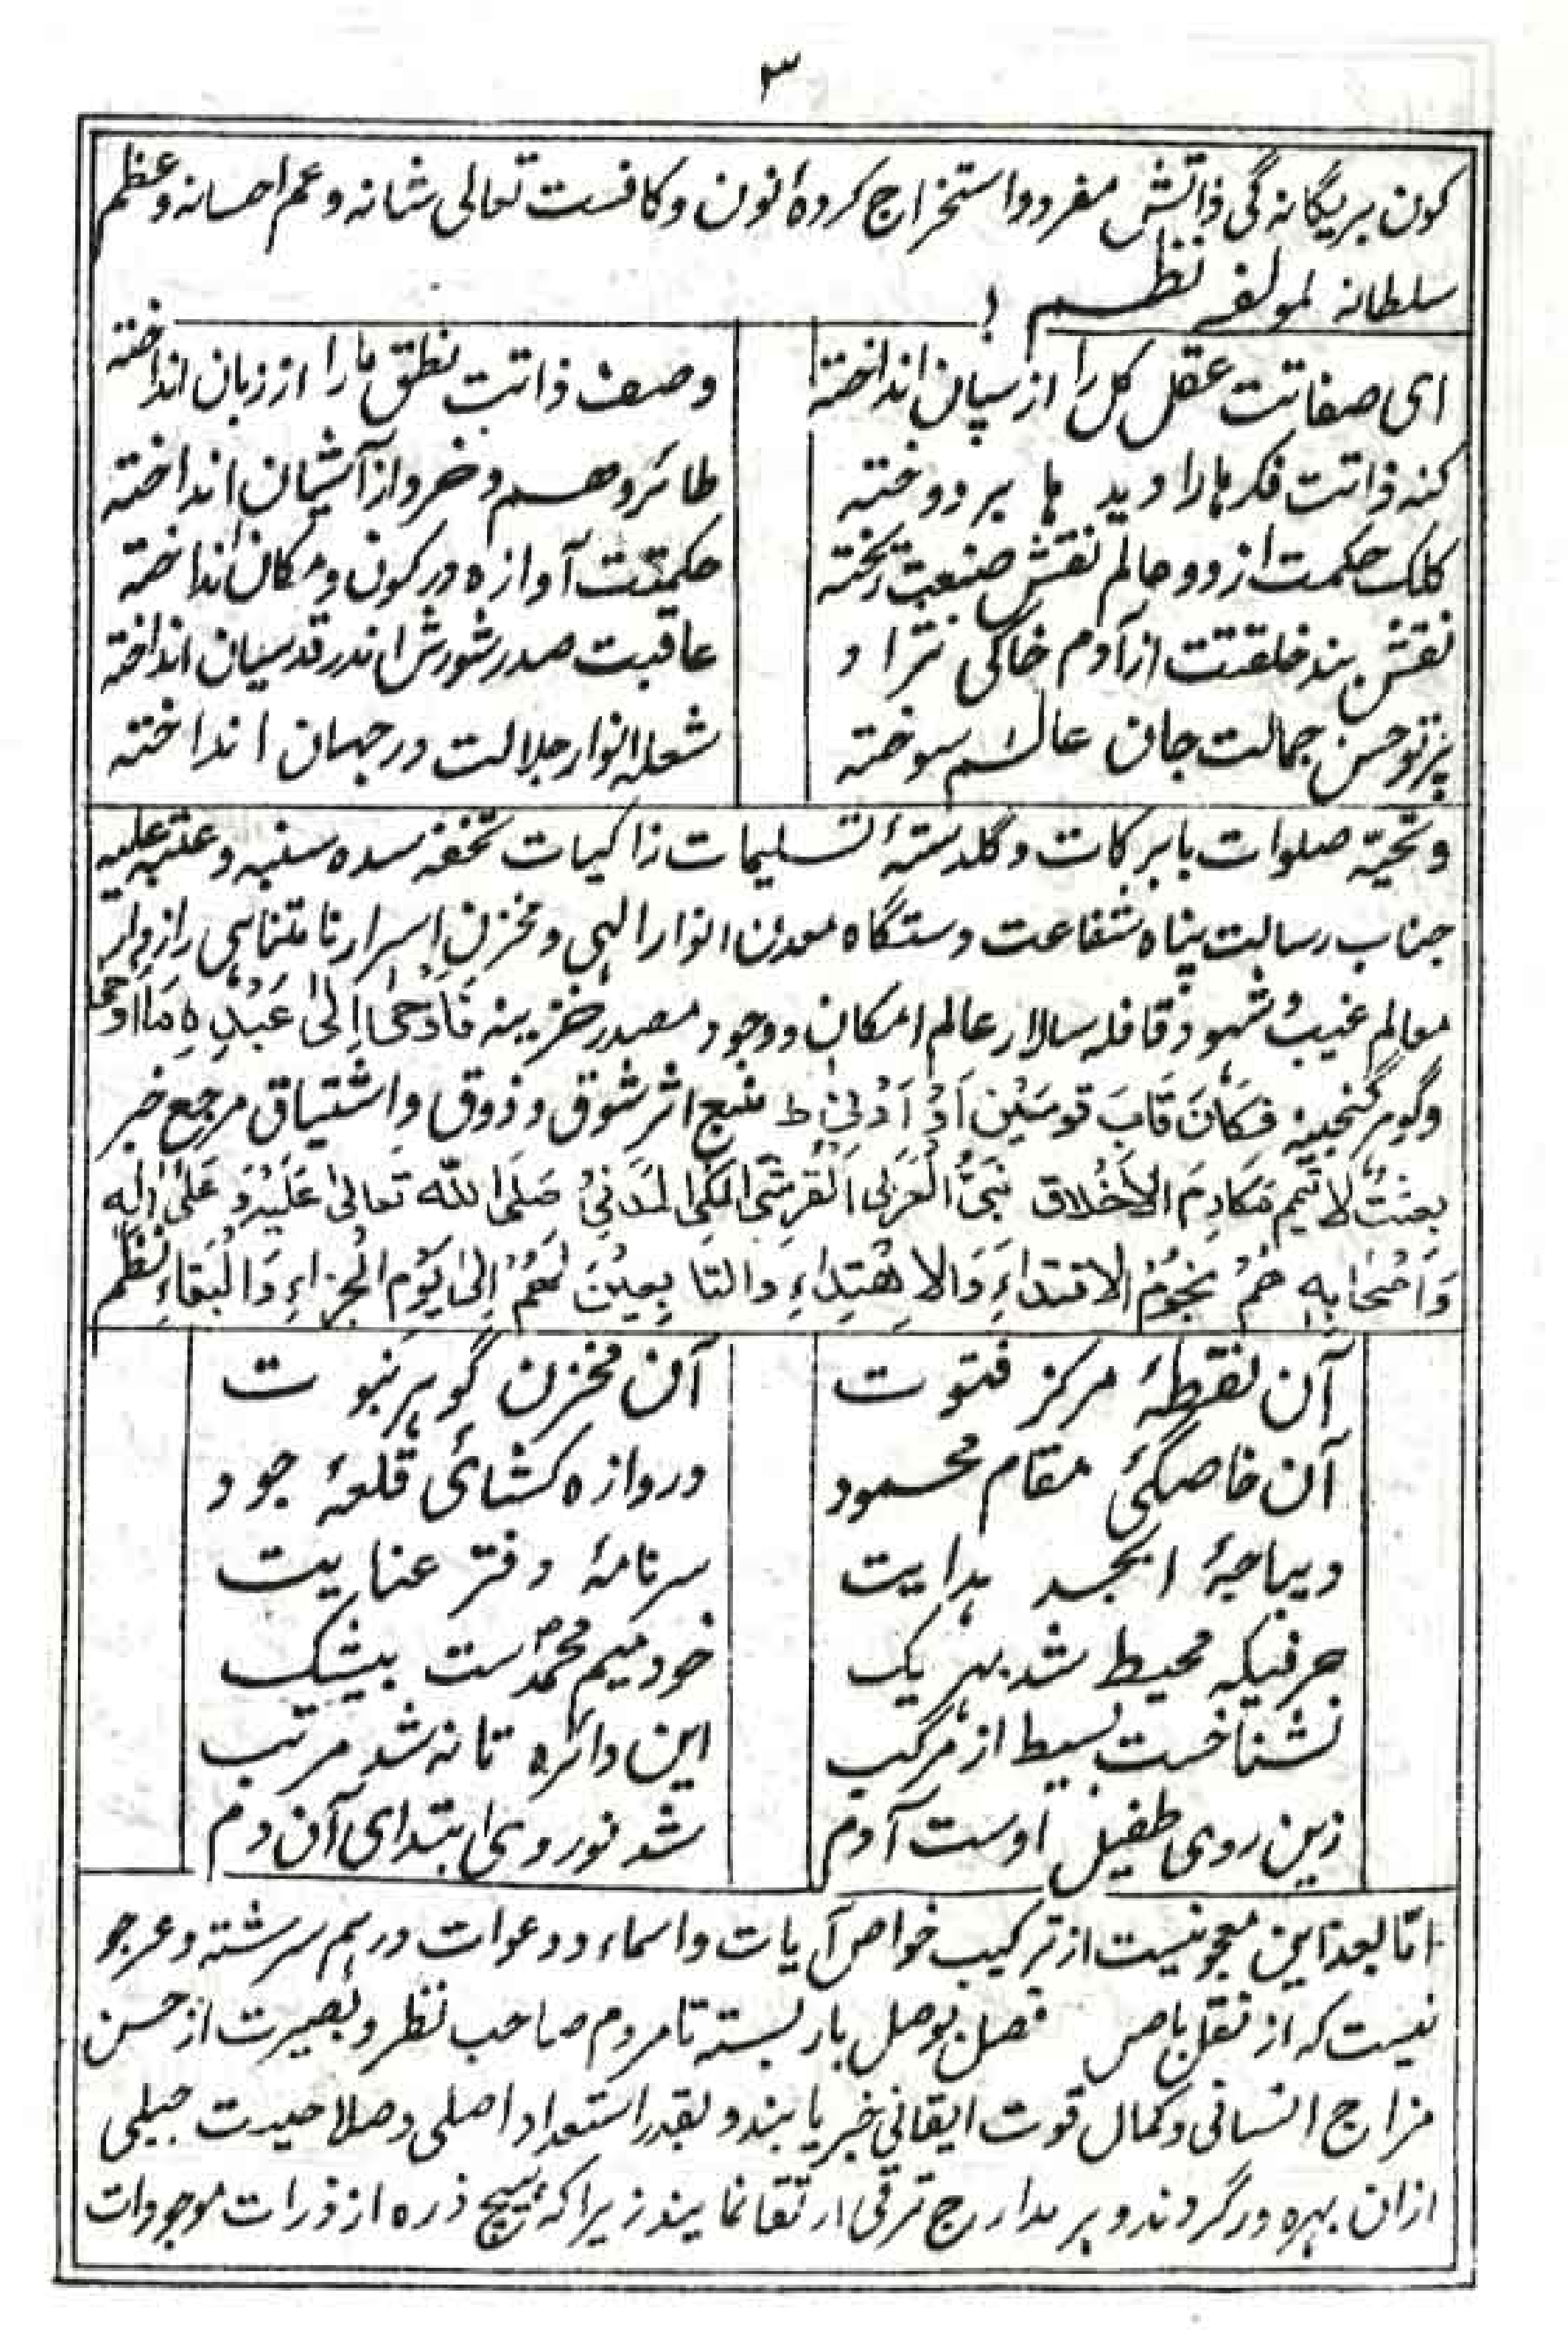 ۳
کون بریگانه گی ذاتش مفرد و استخراج کرده انون و کافست تعالی شانه و عم احسانه و عظم
سلطانه لمولفه نظم
ای صفاتت عقل کل را از بیان انداخته وصف ذاتت نطق ما را از زبان انداخته
کنه ذاتت فکرها را دیدها بردوخته طائر وهم و خرد از آشیان انداخته
کلک حکمت از دو عالم نقش صنعت ریخته حکمتت آوازه در کون و مکان انداخته
نقش بند خلقتت از آدم خاکی نژاد عاقبت صد شورش اندر قدسیان انداخته
پرتو حسن جمالت جان عالم سوخته شعله انوار جلالت در جهان انداخته
و تحیّه صلوات بابرکات و گلدستهٔ تسلیمات زاکیات تحفه سده سنیه و عتبه علیه
جناب رسالت پناه شفاعت دستگاه معدن انوار الهی و مخزنِ اسرار نامتناهی رازدار
معالم غیب و شهود قافله سالار عالم امکان و وجود مصدر خزینه فَاَوْحٰی اِلٰی عَبْدِهٖ مَا اَوْحٰی
و گوهر گنجینه فَکَانَ قَابَ قَوسَیْنِ اَوْ اَدْنیٰ ط منبع اثر شوق و ذوق و اشتیاق مرجع خبر
بعثتُ لاتمم مَکَارِمَ الاَخْلاق نَبِیُّ الْعَرَبی القَرشی المکی المَدَنیُ صَلَی الله تَعالیٰ عَلَیْهِ وَ عَلیٰ اٰلِهٖ
وَاَصْحَابِهٖ هُمْ نُجُومُ الاقتداءِ وَالاِهْتِداءِ وَالتابِعِیْنَ لَهُمْ اِلیٰ یَوْم الْجزاءِ وَالْبَقاءِ نظم
آن نقطهٔ مرکز فتوت آن مخزن گوهر نبوت
آن خاصگیِ مقام محمود دروازه کشائ قلعهٔ جود
دیباجهٔ ابجد هدایت سرنامهٔ دفتر عنایت
حرفیکه محیط شد بهر یک خود میم محمدؐ ست بیشک
نشناخست بسیط از مرکب این دائره تا نه شد مرتب
زین روی طفیل اوست آدم شد نور وی ابتدای آن دم
امّا بعد این معجونیست از ترکیب خواص آیات و اسماء و دعوات درهم سرشته و عرجو
نیست که از نقل باص فصل بوصل بار بسته تا مردم صاحب نظر و بصیرت از حسن
مزاج انسانی و کمال قوت ایقانی خبر یابند و بقدر استعداد اصلی و صلاحیت جبلی
ازان بهره ور گردند و بر مدارج ترقی ارتقا نمایند زیرا که هیچ ذره از ذرات موجودات